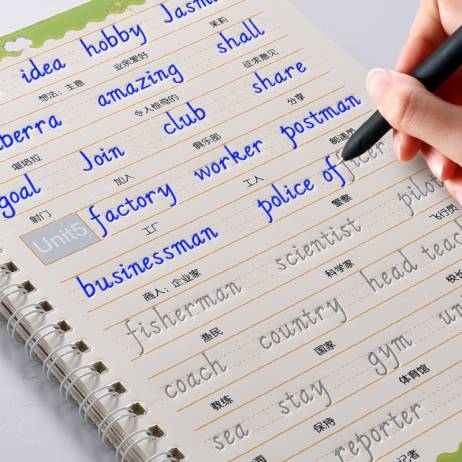 idea hobby Jasm
想法；主意 业余爱好 茉莉
berra amazing shall
堪培拉 令人惊奇的 征求意见
goal Join club share
射门 加入 俱乐部 分享
Unit5 factory worker postman
工厂 工人 邮递员
businessman police officer pilot
商人；企业家 警察 飞行员
fisherman scientist head teac
渔民 科学家 校长
coach country
教练 国家
sea stay gym uni
海 保持 体育馆
reporter
记者